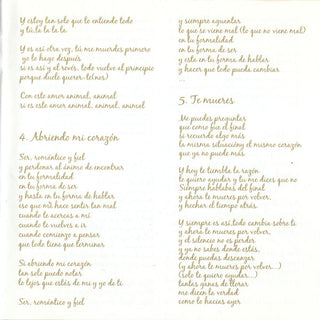 Y estoy tan solo que lo entiendo todo
y tú,la la la la

Y es así otra vez, tú me muerdes primero
yo lo hago después
si es así y al revés, todo vuelve al principio
porque duele querer-te(nos)

Con este amor animal, animal
si es este amor animal, animal, animal

4. Abriendo mi corazón

Ser, romántico y fiel
y perdonar al ánimo de encontrar
si tu formalidad
en tu forma de ser
y hasta en tu forma de hablar
eso que me hace sentir tan mal
cuando te acercas a mí
cuando te vuelves a ir
cuando comienzo a pensar
que todo tiene que terminar

Si abriendo mi corazón
tan solo puedo notar
lo lejos que estés de mí y yo de ti

Ser, romántico y fiel

y siempre aguantar
lo que se viene mal (lo que no viene mal)
en tu formalidad
en tu forma de ser
y esta en tu forma de hablar
y hacer que todo pueda cambiar
...

5. Te mueres

Me puedes preguntar
que como fue el final
si recuerdo algo más
la misma situación y el mismo corazón
que ya no puede más

Y hoy te tiembla la razón
te quiero ayudar y tu me dices que no
Siempre hablabas del final
y ahora te mueres por volver,
y hechar el tiempo atrás.

Y siempre es así,todo cambia sobre ti
y ahora te mueres por volver,
y el silencio no es perder
y ya no sabes donde estés,
donde puedas descansar
(y ahora te mueres por volver...)
(solo te quiero ayudar...)
tantas ganas de llorar
me dicen la verdad
como lo hacías ayer